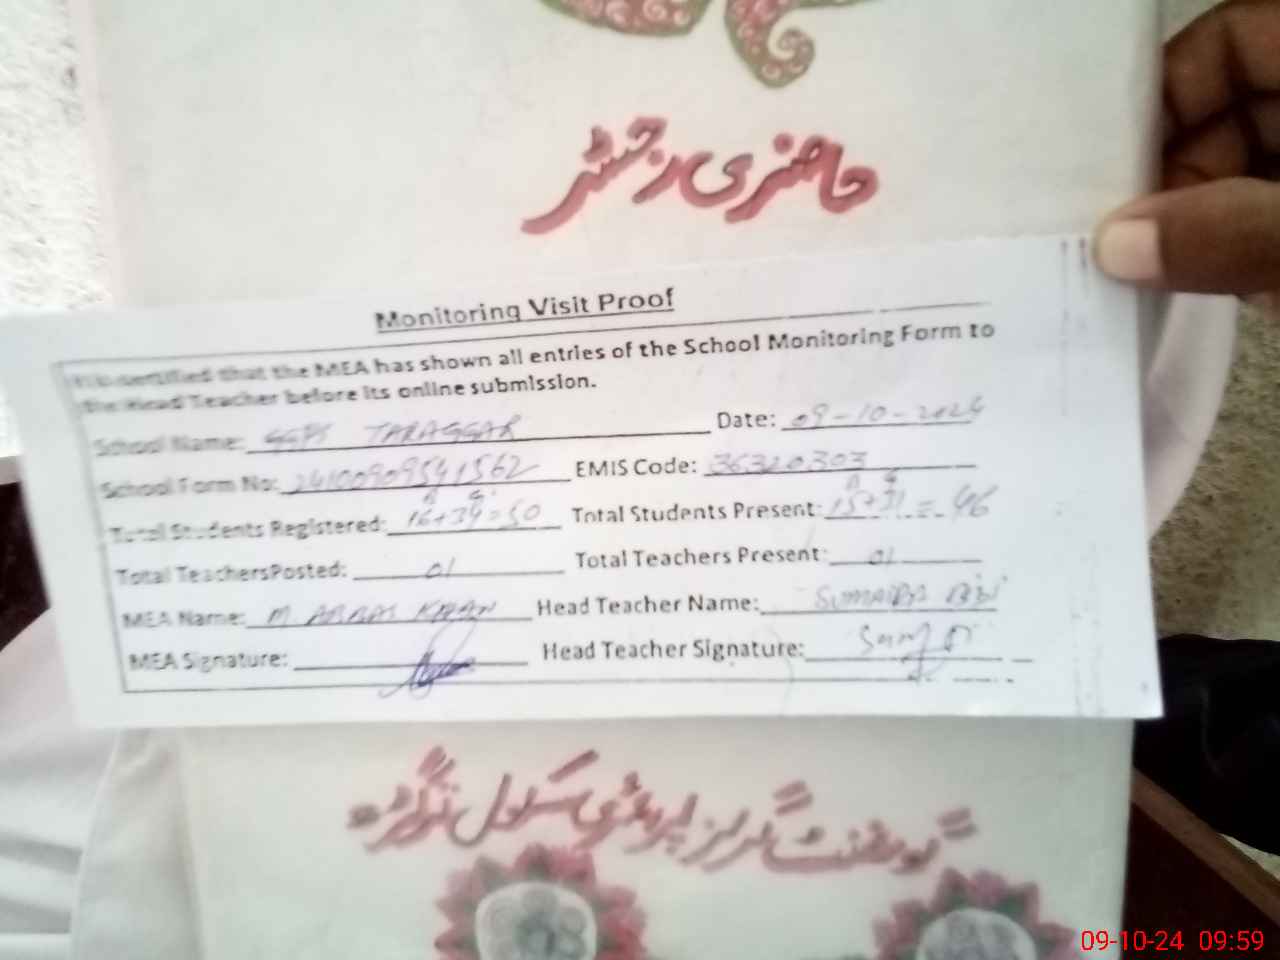 حاضری رجسٹر
Monitoring Visit Proof
It is certified that the MEA has shown all entries of the School Monitoring Form to
the Head Teacher before its online submission.
School Name: GGPS TARAGGAR Date: 09-10-2024
School Form No: 24100909541562 EMIS Code: 36320303
B G B G
Total Students Registered: 16+34=50 Total Students Present: 15+31=46
Total TeachersPosted: 01 Total Teachers Present: 01
MEA Name: M ABBAS KHAN Head Teacher Name: SUMAIRA BIBI
MEA Signature: Head Teacher Signature:
گورنمنٹ گرلز پرائمری سکول تراگڑھ
09-10-24 09:59